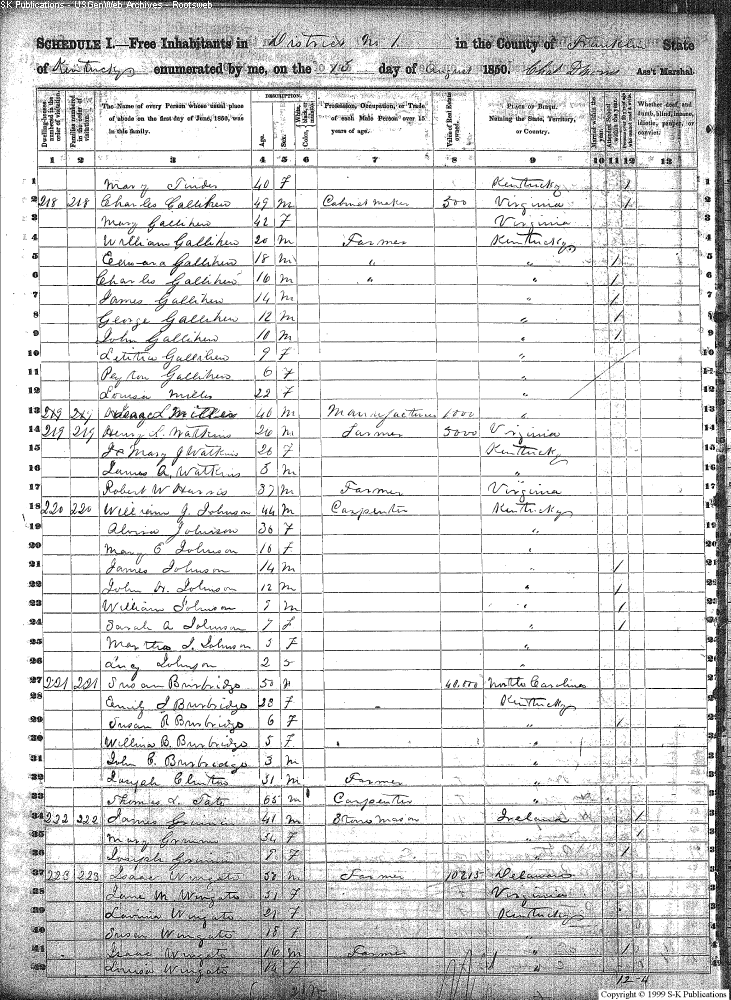 SK Publications - USGenWeb Archives - Rootsweb
SCHEDULE I.—Free Inhabitants in District No 1 in the County of Franklin State
of Kentucky enumerated by me, on the 15 day of August 1850. Ass't Marshal.
Dwelling-houses numbered in the order of visitation.
Families numbered in the order of visitation.
The Name of every Person whose usual place of abode on the first day of June, 1850, was in this family.
DESCRIPTION.
Age.
Sex.
Color, White, black, or mulatto.
Profession, Occupation, or Trade of each Male Person over 15 years of age.
Value of Real Estate owned.
PLACE OF BIRTH. Naming the State, Territory, or Country.
Married within the year.
Whether deaf and dumb, blind, insane, idiotic, pauper, or convict.
1 2 3 4 5 6 7 8 9 10 11 12 13
1 Mary 40 F Kentucky / 1
2 218 218 Charles Gallihew 49 M Cabinet maker 500 Virginia / 2
3 Mary Gallihew 42 F Virginia 3
4 William Gallihew 20 M Farmer Kentucky 4
5 Gallihew 18 M " " / 5
6 Charles Gallihew 16 M " " / 6
7 James Gallihew 14 M " / 7
8 George Gallihew 12 M " / 8
9 John Gallihew 10 M " / 9
10 Letitia Gallihew 9 F " 10
11 Peyton Gallihew 6 F " 11
12 Louisa Miller 22 F " 12
13 219 219 Miller 40 M Manufacturer 1000 " 13
14 219 219 Henry L. Watkins 26 M Farmer 5000 Virginia 14
15 Mary J Watkins 20 F Kentucky 15
16 James A. Watkins M " 16
17 Robert W Harris 37 M Farmer Virginia 17
18 220 220 William J. Johnson 44 M Carpenter Kentucky 18
19 Johnson 36 F " 19
20 Mary E Johnson 16 F " 20
21 James Johnson 14 M " / 21
22 John H. Johnson 12 M " / 22
23 William Johnson M " / 23
24 Sarah A Johnson 7 F " / 24
25 Martha J. Johnson 3 F " 25
26 Lucy Johnson 2 " 26
27 221 221 Susan Burbridge 50 40,000 North Carolina 27
28 Emily J Burbridge 28 F Kentucky 28
29 Susan R Burbridge 6 F " / 29
30 Willina B. Burbridge 5 F " 30
31 John C. Burbridge 3 M " 31
32 31 M Farmer " 32
33 Thomas L. Tate 65 M Carpenter " 33
34 222 222 James 41 M Stone mason Ireland / 34
35 Mary 34 F " / 35
36 Joseph 8 F " / 36
37 223 223 Isaac Wingate 58 M Farmer 10215 Delaware 37
38 Jane M Wingate 51 F Virginia 38
39 Lavinia Wingate 21 F Kentucky 39
40 Susan Wingate 18 F " 40
41 Isaac Wingate 16 M Farmer " / 41
42 Louisa Wingate 14 F " / 42
12-4
Copyright © 1999 S-K Publications